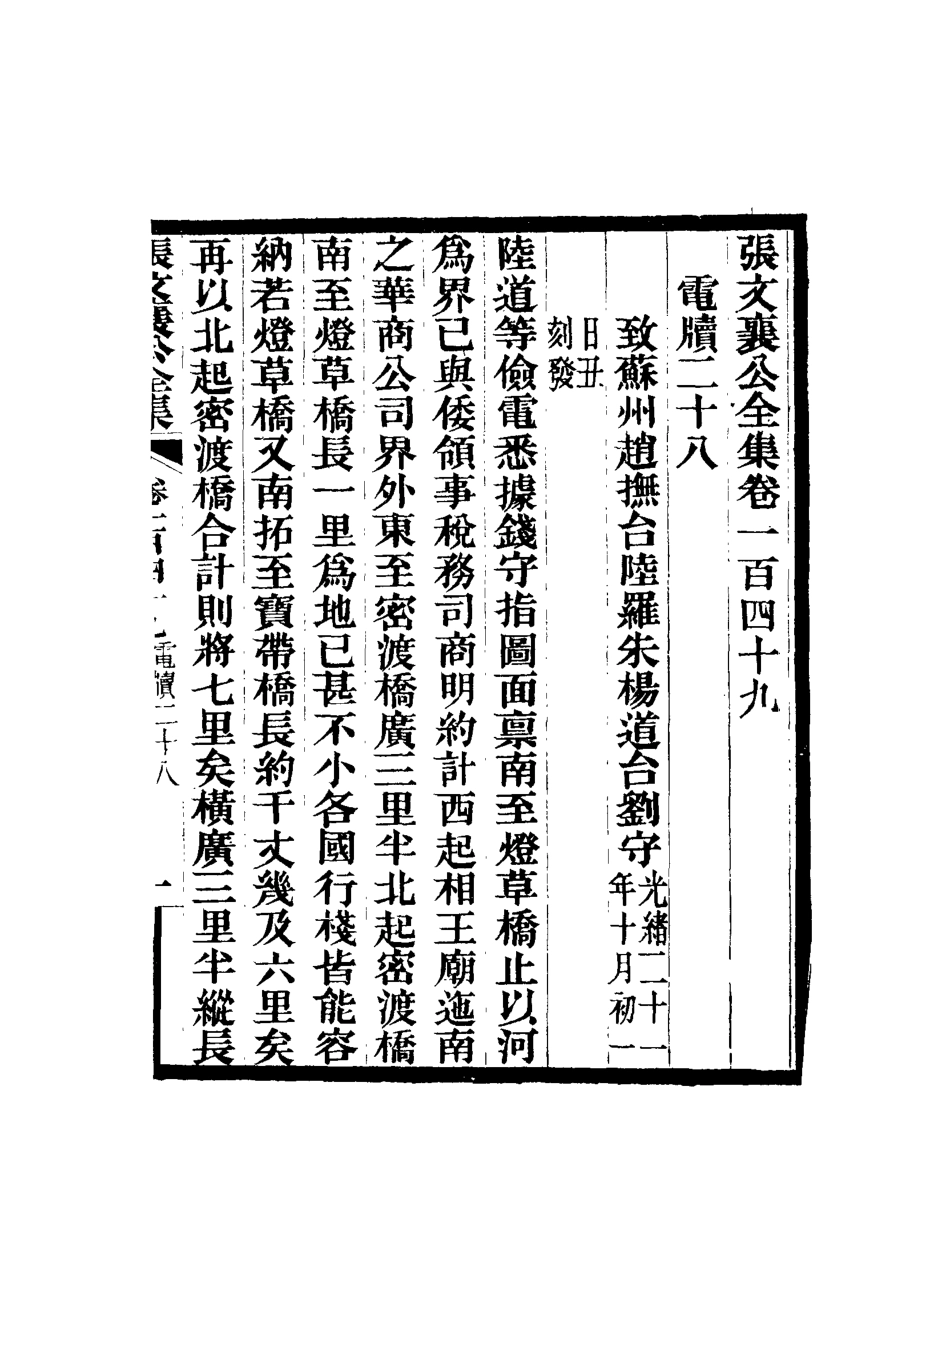 張文襄公全集卷一百四十九
電牘二十八
致蘇州趙撫台陸羅朱楊道台劉守光緒二十一年十月初一
日丑刻發
陸道等儉電悉據錢守指圖面稟南至燈草橋止以河
爲界已與倭領事稅務司商明約計西起相王廟迤南
之華商公司界外東至密渡橋廣三里半北起密渡橋
南至燈草橋長一里爲地已甚不小各國行棧皆能容
納若燈草橋又南拓至寶帶橋長約千丈幾及六里矣
再以北起密渡橋合計則將七里矣橫廣三里半縱長
張文襄公全集 卷一百四十九 電牘二十八 一